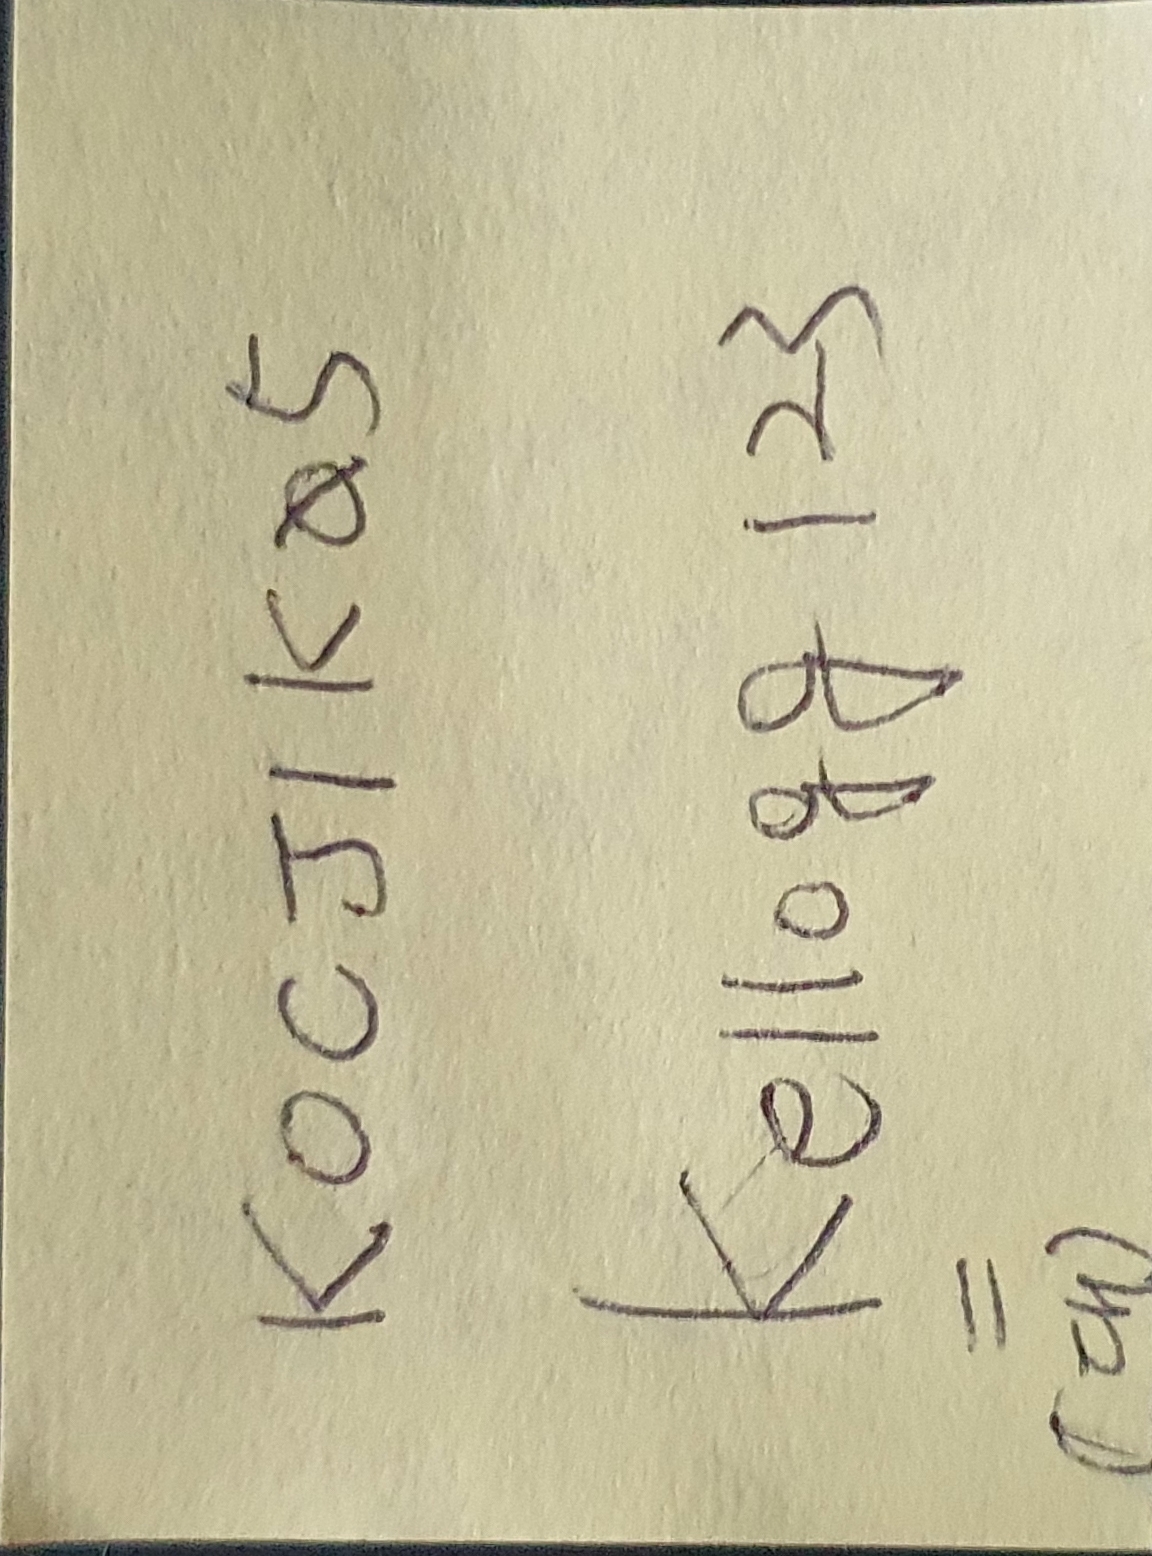 KOCJIKQ5
Kellogg 123
=
(대)